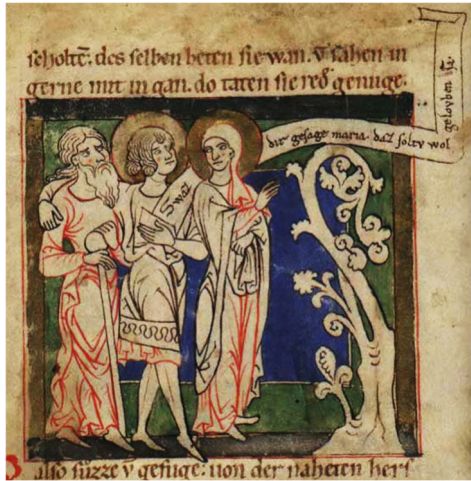 scholtē. des selben heten sie wan. v̄ sahen in
gerne mit in gan. do taten sie red genuge.
Swaz
dir gesage maria. daz soltv wol
gelovben
also suͤzze v̄ gefuge: uon der naheten